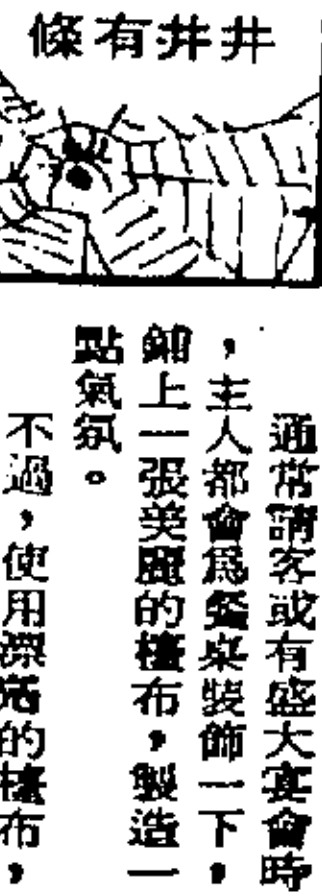 井井有條
通常請客或有盛大宴會時
，主人都會為餐桌裝飾一下，
鋪上一張美麗的檯布，製造一
點氣氛。
不過，使用漂亮的檯布，